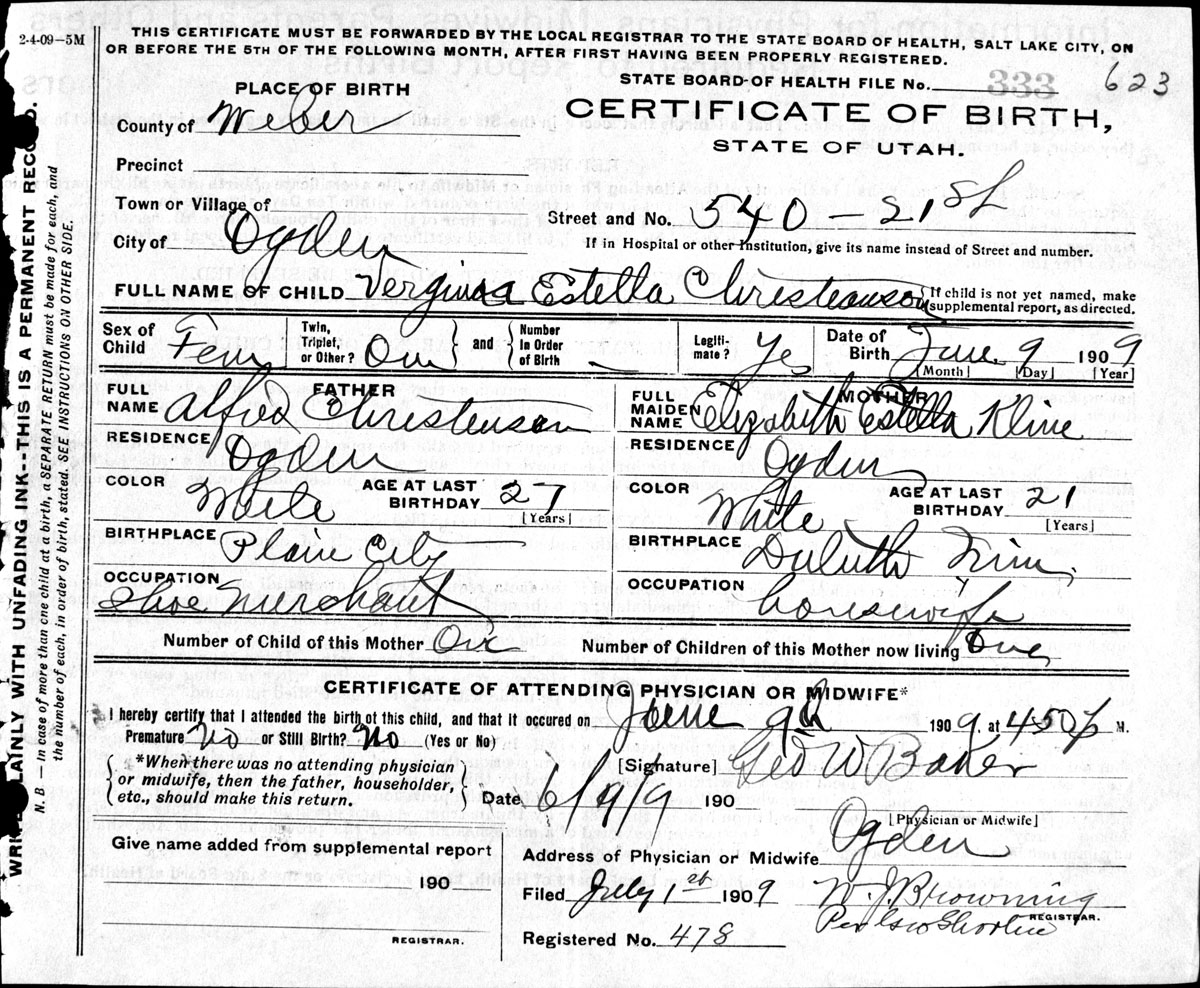 2-4-09—5M
THIS CERTIFICATE MUST BE FORWARDED BY THE LOCAL REGISTRAR TO THE STATE BOARD OF HEALTH, SALT LAKE CITY, ON
OR BEFORE THE 5TH OF THE FOLLOWING MONTH, AFTER FIRST HAVING BEEN PROPERLY REGISTERED.
STATE BOARD OF HEALTH FILE No. 333 623
PLACE OF BIRTH
CERTIFICATE OF BIRTH,
STATE OF UTAH.
County of Weber
Precinct
Town or Village of
City of Ogden
Street and No. 540 — 21 St
If in Hospital or other Institution, give its name instead of Street and number.
FULL NAME OF CHILD Verginia Estella Christeanson { If child is not yet named, make
supplemental report, as directed.
Sex of Child Fem
Twin, Triplet, or Other? One } and { Number in Order of Birth
Legiti-mate? Yes
Date of Birth June 9 1909
[Month] [Day] [Year]
FATHER
FULL NAME Alfred Christensen
RESIDENCE Ogden
COLOR White AGE AT LAST BIRTHDAY 27 [Years]
BIRTHPLACE Plain City
OCCUPATION Shoe Merchant
MOTHER
FULL MAIDEN NAME Elizabeth Estella Kline
RESIDENCE Ogden
COLOR White AGE AT LAST BIRTHDAY 21 [Years]
BIRTHPLACE Duluth
OCCUPATION housewife
Number of Child of this Mother One Number of Children of this Mother now living One
CERTIFICATE OF ATTENDING PHYSICIAN OR MIDWIFE*
I hereby certify that I attended the birth of this child, and that it occured on June 9th 1909, at 4:50 P M.
Premature No or Still Birth? No (Yes or No)
{ *When there was no attending physician
or midwife, then the father, householder,
etc., should make this return. }
[Signature] Geo W Baker
Date 6/9/9 190
[Physician or Midwife]
Give name added from supplemental report
190
REGISTRAR.
Address of Physician or Midwife Ogden
Filed July 1st 1909 W. J. Browning
REGISTRAR.
Per
Registered No. 478
WRITE PLAINLY WITH UNFADING INK--THIS IS A PERMANENT RECORD.
N. B. — In case of more than one child at a birth, a SEPARATE RETURN must be made for each, and
the number of each, in order of birth, stated. SEE INSTRUCTIONS ON OTHER SIDE.